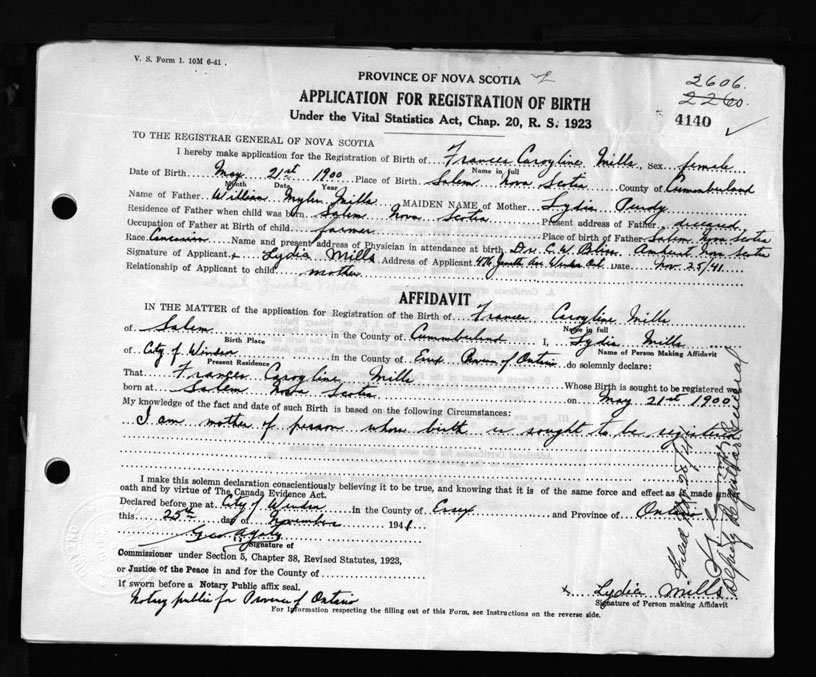 V. S. Form 1. 10M 6-41.
PROVINCE OF NOVA SCOTIA
2606.
2260.
APPLICATION FOR REGISTRATION OF BIRTH
Under the Vital Statistics Act, Chap. 20, R. S. 1923
4140
TO THE REGISTRAR GENERAL OF NOVA SCOTIA
I hereby make application for the Registration of Birth of Frances Caroyline Mills, Sex female
Name in full
Date of Birth May 21st 1900 Place of Birth Salem Nova Scotia County of Cummberland
Month Date Year
Name of Father William Mills MAIDEN NAME of Mother Lydia Purdy
Residence of Father when child was born Salem Nova Scotia Present address of Father diseased
Occupation of Father at Birth of child farmer Place of birth of Father Salem Nova Scotia
Race Name and present address of Physician in attendance at birth Dr. C. W. Bliss Amherst Nova Scotia
Signature of Applicant x Lydia Mills Address of Applicant Windsor Ont. Date Nov. 25/41
Relationship of Applicant to child mother
AFFIDAVIT
IN THE MATTER of the application for Registration of the Birth of Frances Caroyline Mills
Name in full
of Salem in the County of Cummberland I, Lydia Mills
Birth Place Name of Person Making Affidavit
of City of Windsor in the County of Essex of Ontario do solemnly declare:
Present Residence
That Frances Caroyline Mills Whose Birth is sought to be registered was
born at Salem Nova Scotia on May 21st 1900
My knowledge of the fact and date of such Birth is based on the following Circumstances:
I am mother of person whose birth is sought to be registered
I make this solemn declaration conscientiously believing it to be true, and knowing that it is of the same force and effect as if made under
oath and by virtue of The Canada Evidence Act.
Declared before me at City of Windsor in the County of Essex and Province of Ontario
this 25th day of November 1941
Geo.
Signature of
Commissioner under Section 5, Chapter 38, Revised Statutes, 1923,
or Justice of the Peace in and for the County of
If sworn before a Notary Public affix seal.
x Lydia Mills
Signature of Person making Affidavit
Notary public for Province of Ontario
For Information respecting the filling out of this Form, see Instructions on the reverse side.
Filed
Deputy Registrar General